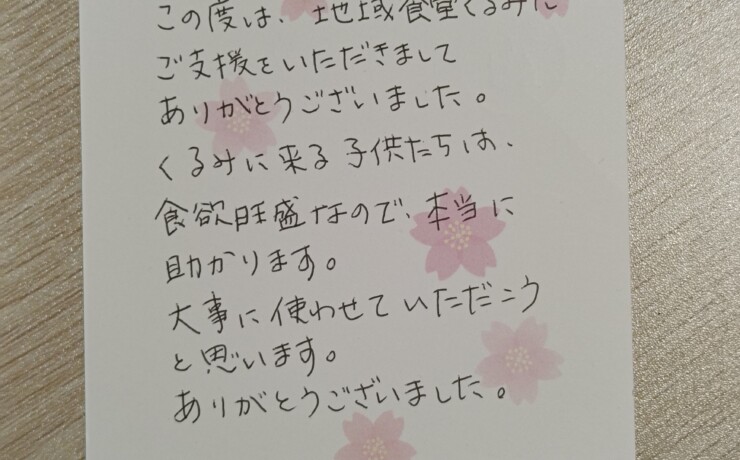 この度は、地域食堂くるみに
ご支援をいただきまして
ありがとうございました。
くるみに来る子供たちは、
食欲旺盛なので、本当に
助かります。
大事に使わせていただこう
と思います。
ありがとうございました。